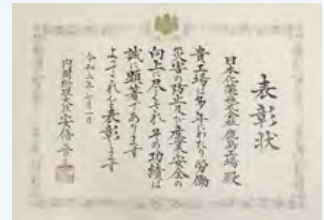 表彰状
日本化薬株式会社鹿島工場 殿
貴工場は多年にわたり労働
災害の防止及び産業安全の
向上に尽くされその功績は
誠に顕著であります
よってこれを表彰します
令和二年七月一日
内閣総理大臣 安倍晋三